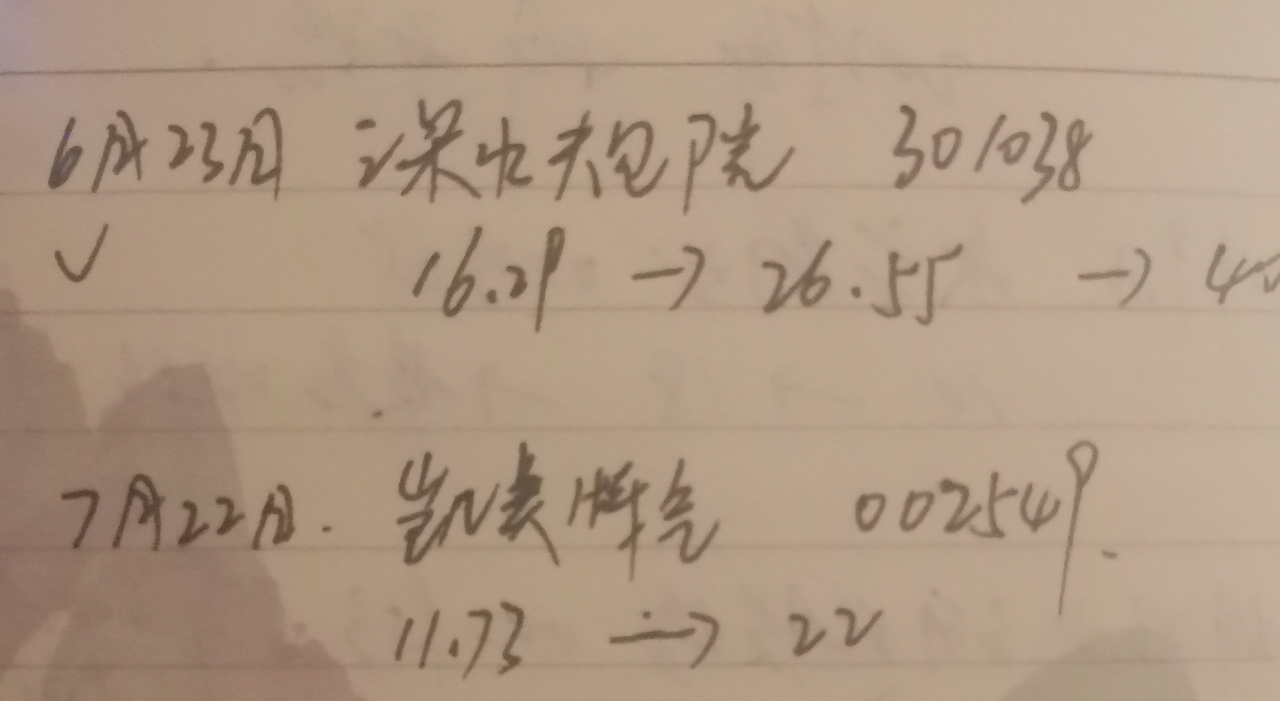 6月23日 深水规院 301038
✓ 16.29 → 26.55 → 4
7月22日. 凯美特气 002549.
11.73 → 22